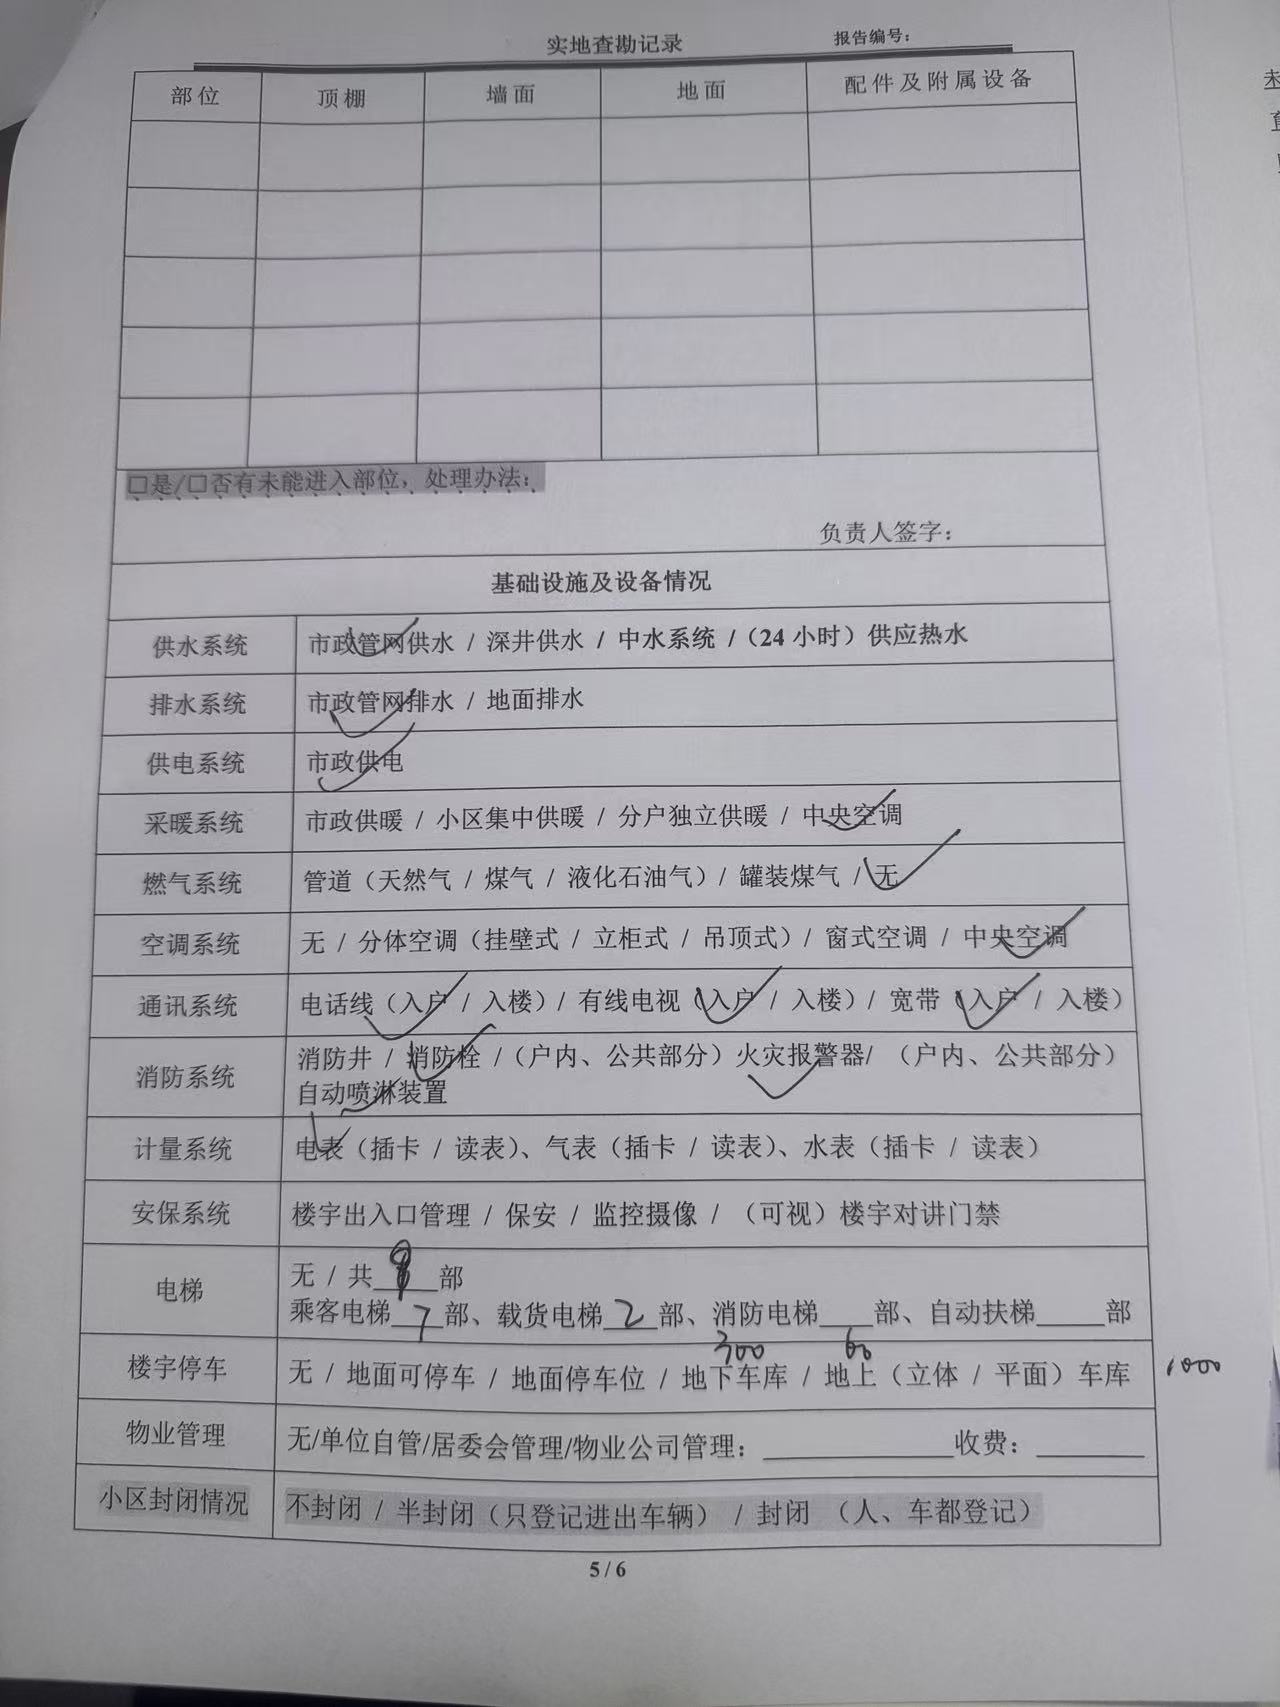 实地查勘记录 报告编号：
部位 顶棚 墙面 地面 配件及附属设备
□是/□否有未能进入部位，处理办法：
负责人签字：
基础设施及设备情况
供水系统 市政管网供水 / 深井供水 / 中水系统 /（24 小时）供应热水
排水系统 市政管网排水 / 地面排水
供电系统 市政供电
采暖系统 市政供暖 / 小区集中供暖 / 分户独立供暖 / 中央空调
燃气系统 管道（天然气 / 煤气 / 液化石油气）/ 罐装煤气 / 无
空调系统 无 / 分体空调（挂壁式 / 立柜式 / 吊顶式）/ 窗式空调 / 中央空调
通讯系统 电话线（入户 / 入楼）/ 有线电视（入户 / 入楼）/ 宽带（入户 / 入楼）
消防系统 消防井 / 消防栓 /（户内、公共部分）火灾报警器/ （户内、公共部分）
自动喷淋装置
计量系统 电表（插卡 / 读表）、气表（插卡 / 读表）、水表（插卡 / 读表）
安保系统 楼宇出入口管理 / 保安 / 监控摄像 / （可视）楼宇对讲门禁
电梯 无 / 共 9 部
乘客电梯 7 部、载货电梯 2 部、消防电梯____部、自动扶梯_____部
300 60
楼宇停车 无 / 地面可停车 / 地面停车位 / 地下车库 / 地上（立体 / 平面）车库 1000
物业管理 无/单位自管/居委会管理/物业公司管理：______________收费：________
小区封闭情况 不封闭 / 半封闭（只登记进出车辆） / 封闭 （人、车都登记）
5 / 6